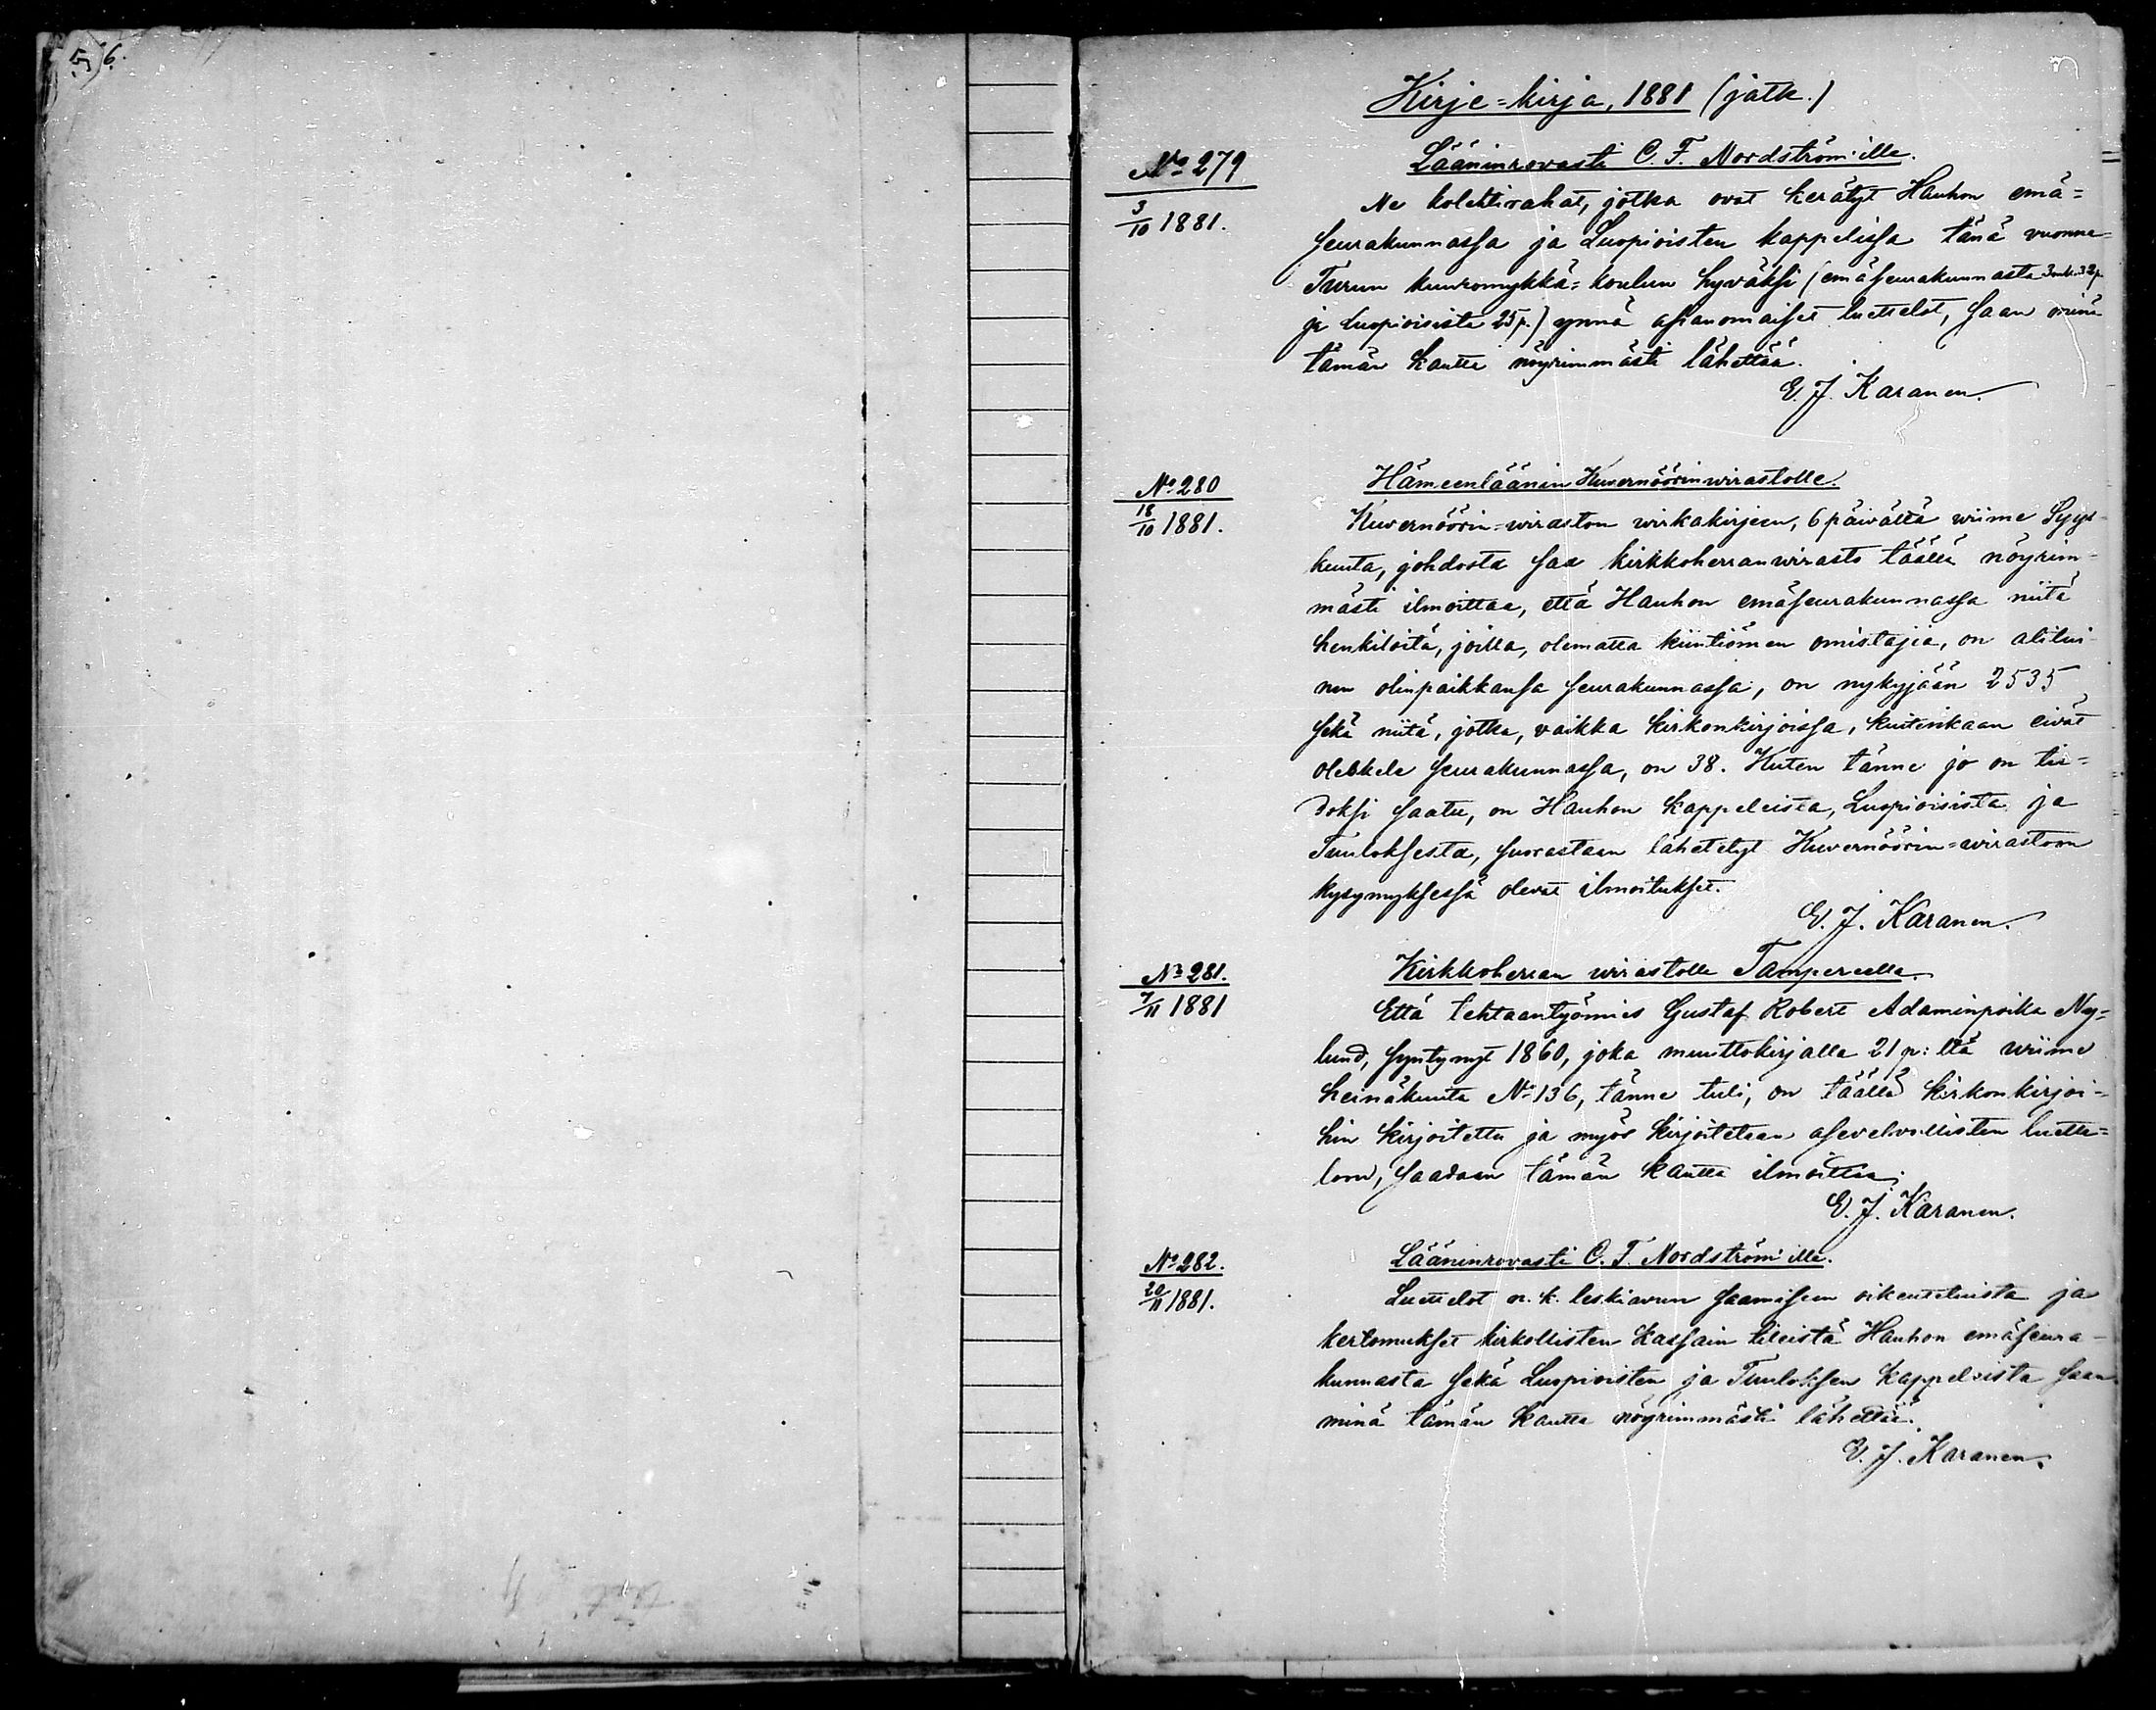 5) 6.
Kirje=kirja, 1881 (jatk.)
No 279
3/10 1881.
Lääninrovasti C. F. Nordström'ille.
Ne kolehtirahat, jotka ovat kerätyt Hauhon emä=
seurakunnassa ja Luopioisten kappelissa tänä vuonna
Turun kuuromykkä=koulun hyväksi (emäseurakunnasta 3 mk. 32 p.
ja Luopioisista 25 p.) ynnä asianomaiset luettelot, saan minä
tämän kautta nöyrimmästi lähettää.
E. J. Karanen.
No 280
18/10 1881.
Hämeenläänin Kuvernöörinwirastolle.
Kuvernöörin=wiraston wirkakirjeen, 6 päivältä wiime Syys-
kuuta, johdosta saa kirkkoherranwirasto täällä nöyrim-
mästi ilmoittaa, että Hauhon emäseurakunnassa niitä
henkilöitä, joilla, olematta kiintiömen omistajia, on alitui-
nen olinpaikkansa seurakunnassa, on nykyjään 2535
sekä niitä, jotka, vaikka kirkonkirjoissa, kuitenkaan eivät
oleskele seurakunnassa, on 38. Kuten tänne jo on tie=
doksi saatu, on Hauhon kappeleista, Luopioisista ja
Tuuloksesta, suorastaan lähetetyt Kuvernöörin=wirastoon
kysymyksessä olevat ilmoitukset.
E. J. Karanen.
No 281.
7/11 1881
Kirkkoherran wirastolle Tampereella.
Että tehtaantyömies Gustaf Robert Adaminpoika Ny=
lund, syntynyt 1860, joka muuttokirjalla 21 p:ltä wiime
heinäkuuta No 136, tänne tuli, on täällä kirkonkirjoi-
hin kirjoitettu ja myös kirjoitetaan asevelvollisten luette=
loon, saadaan tämän kautta ilmoittaa.
E. J. Karanen.
No 282.
20/11 1881.
Lääninrovasti C. F. Nordström'ille.
Luettelot n. k. leskiavun saamiseen oikeutetuista ja
kertomukset kirkollisten kassain tileistä Hauhon emäseura-
kunnasta sekä Luopioisten ja Tuuloksen kappeleista saan
minä tämän kautta nöyrimmästi lähettää.
E. J. Karanen.